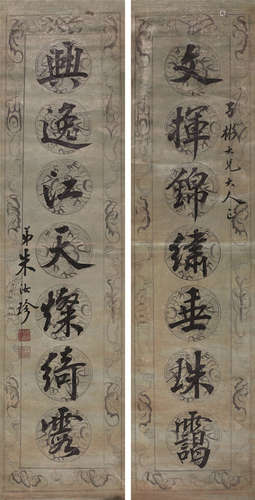 子樹大兄大人正
文揮錦繡垂珠靄
興逸江天燦綺霞
弟朱汝珍